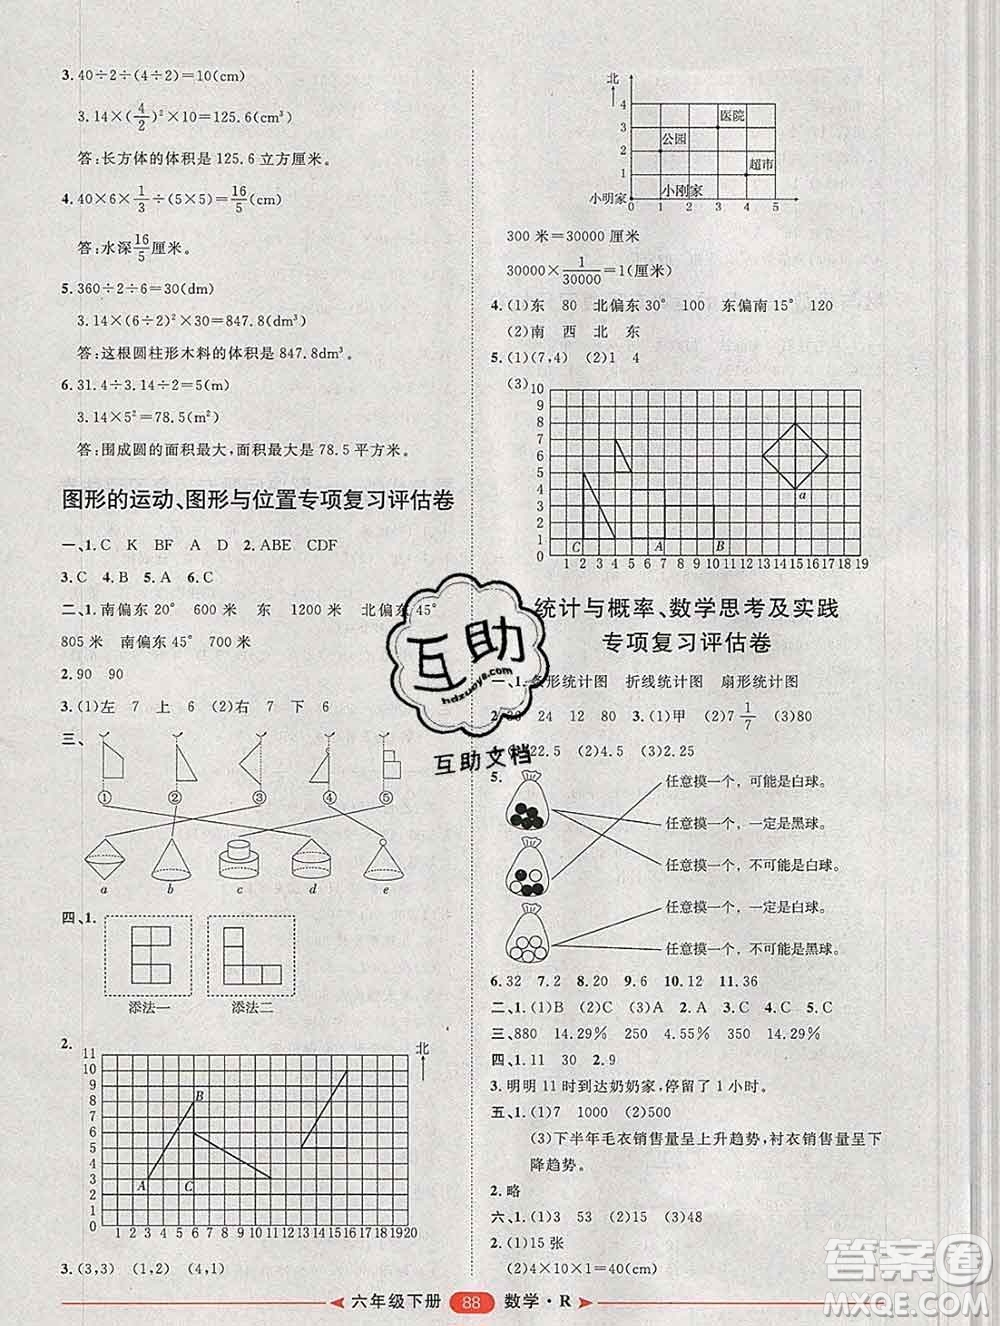 3. 40÷2÷(4÷2)=10(cm)
3.14×(4/2)²×10=125.6(cm³)
答:长方体的体积是125.6立方厘米。
4. 40×6×1/3÷(5×5)=16/5(cm)
答:水深16/5厘米。
5. 360÷2÷6=30(dm)
3.14×(6÷2)²×30=847.8(dm³)
答:这根圆柱形木料的体积是847.8dm³。
6. 31.4÷3.14÷2=5(m)
3.14×5²=78.5(m²)
答:围成圆的面积最大,面积最大是78.5平方米。
图形的运动、图形与位置专项复习评估卷
一、1.C K BF A D 2.ABE CDF
3.C 4.B 5.A 6.C
二、1.南偏东20° 600米 东 1200米 北偏东45°
805米 南偏东45° 700米
2.90 90
3.(1)左 7 上 6 (2)右 7 下 6
三、
① ② ③ ④ ⑤
a b c d e
四、1.
添法一 添法二
2.
北
11
10
9
8
7
6
5
4
3
2
1
0
B
A C
1 2 3 4 5 6 7 8 9 10 11 12 13 14 15 16 17 18 19 20
3.(3,3) (1,2) (4,1)
北
4
3
2
1
医院
公园
超市
小刚家
小明家 0 1 2 3 4 5
300米=30000厘米
30000×1/30000=1(厘米)
4.(1)东 80 北偏东30° 100 东偏南15° 120
(2)南 西 北 东
5.(1)(7,4) (2)1 4
(3)
10
9
8
7
6
5
4
3
2
1
0
a
C A B
1 2 3 4 5 6 7 8 9 10 11 12 13 14 15 16 17 18 19
统计与概率、数学思考及实践
专项复习评估卷
一、1.条形统计图 折线统计图 扇形统计图
24 12 80 3.(1)甲 (2)7 1/7 (3)80
22.5 (2)4.5 (3)2.25
5.
任意摸一个,可能是白球。
任意摸一个,一定是黑球。
任意摸一个,不可能是白球。
任意摸一个,一定是白球。
任意摸一个,不可能是黑球。
6.32 7.2 8.20 9.6 10.12 11.36
二、1.(1)B (2)C (3)A 2.A 3.B 4.C 5.C
三、880 14.29% 250 4.55% 350 14.29%
四、1.11 30 2.9
3.明明11时到达奶奶家,停留了1小时。
五、1.(1)7 1000 (2)500
(3)下半年毛衣销售量呈上升趋势,衬衣销售量呈下
降趋势。
2.略
六、1.(1)3 53 (2)15 (3)48
2.(1)15张
(2)4×10=40(cm)
六年级下册 88 数学·R
互助
hdzuoye.com
互助文档
答案圈
MXQE.COM